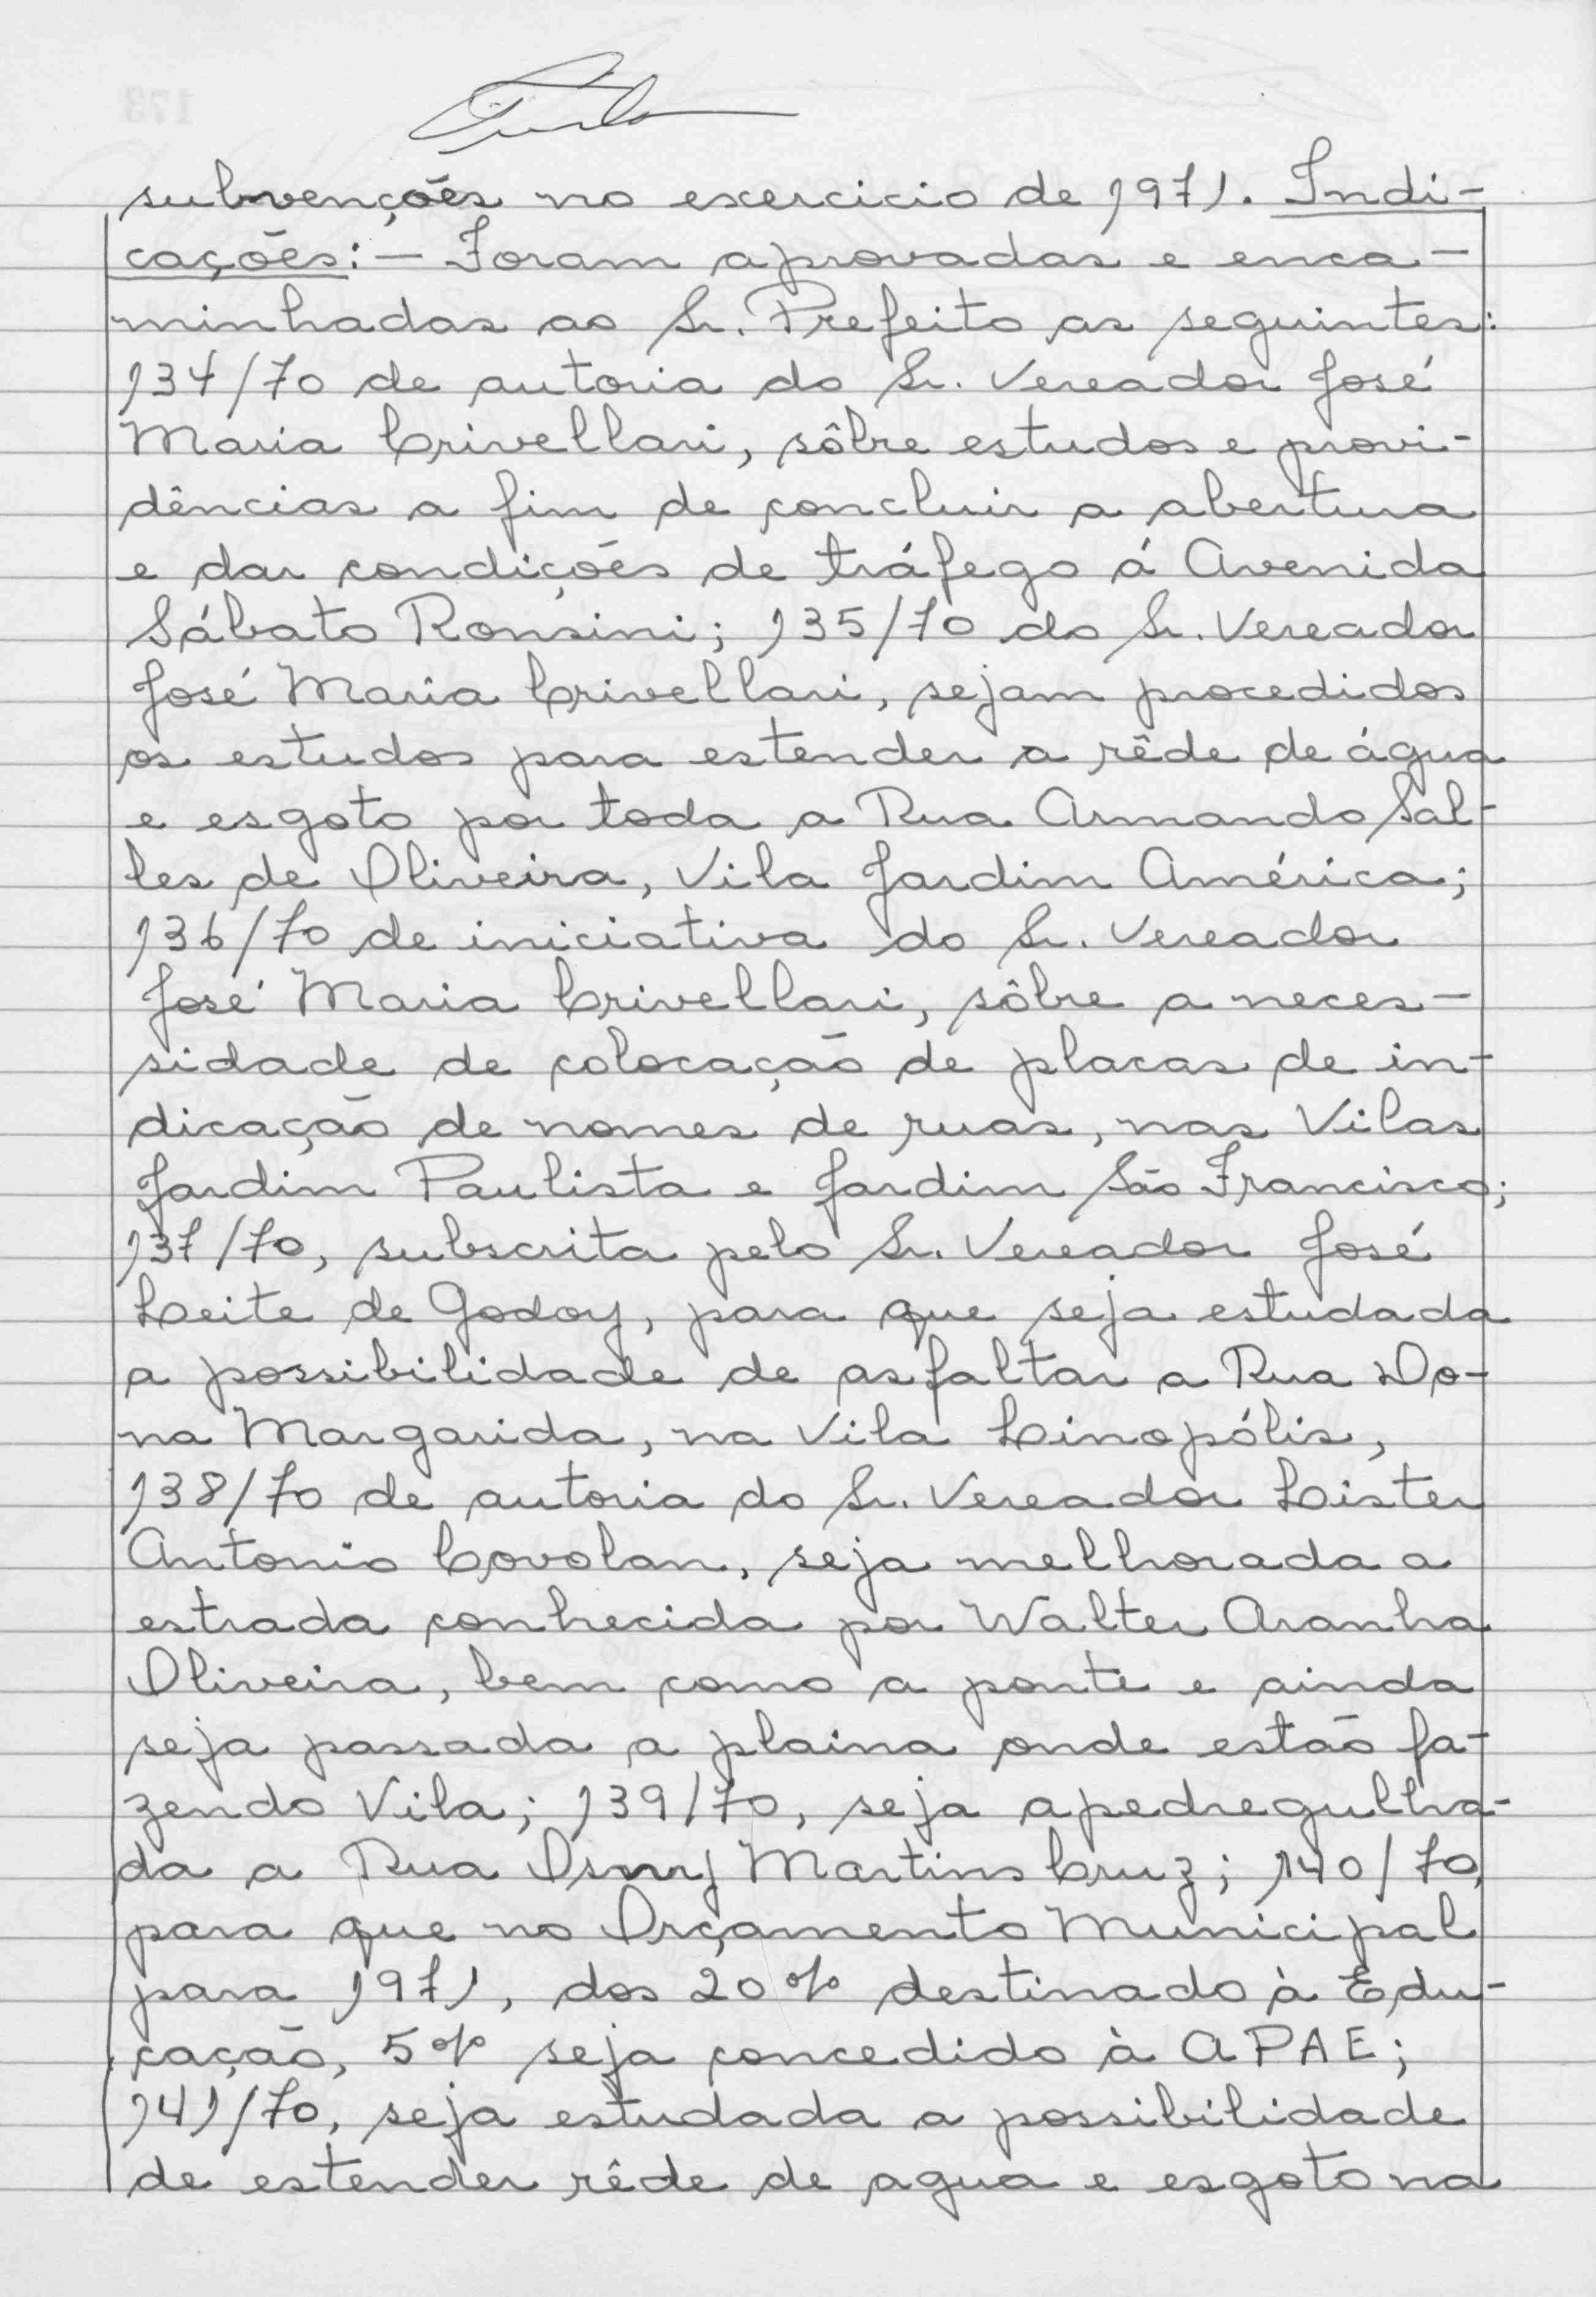 subvenções no exercicio de 1971. Indi-
cações:- Foram aprovadas e enca-
minhadas ao Sr. Prefeito as seguintes:
134/70 de autoria do Sr. Vereador José
Maria Crivellari, sôbre estudos e provi-
dências a fim de concluir a abertura
e dar condições de tráfego á Avenida
Sábato Ronsini; 135/70 do Sr. Vereador
José Maria Crivellari, sejam procedidos
os estudos para estender a rêde de água
e esgoto por toda a Rua Armando Sal-
les de Oliveira, Vila Jardim América;
136/70 de iniciativa do Sr. Vereador
José Maria Crivellari, sôbre a neces-
sidade de colocação de placas de in-
dicação de nomes de ruas, nas Vilas
Jardim Paulista e Jardim São Francisco;
137/70, subscrita pelo Sr. Vereador José
Leite de Godoy, para que seja estudada
a possibilidade de asfaltar a Rua Do-
na Margarida, na Vila Linopólis,
138/70 de autoria do Sr. Vereador Lister
Antonio Covolan, seja melhorada a
estrada conhecida por Walter Aranha
Oliveira, bem como a ponte e ainda
seja passada a plaina onde estão fa-
zendo Vila; 139/70, seja apedregulha-
da a Rua Osny Martins Cruz; 140/70,
para que no Orçamento Municipal
para 1971, dos 20% destinado à Edu-
cação, 5% seja concedido à APAE;
141/70, seja estudada a possibilidade
de estender rêde de agua e esgoto na